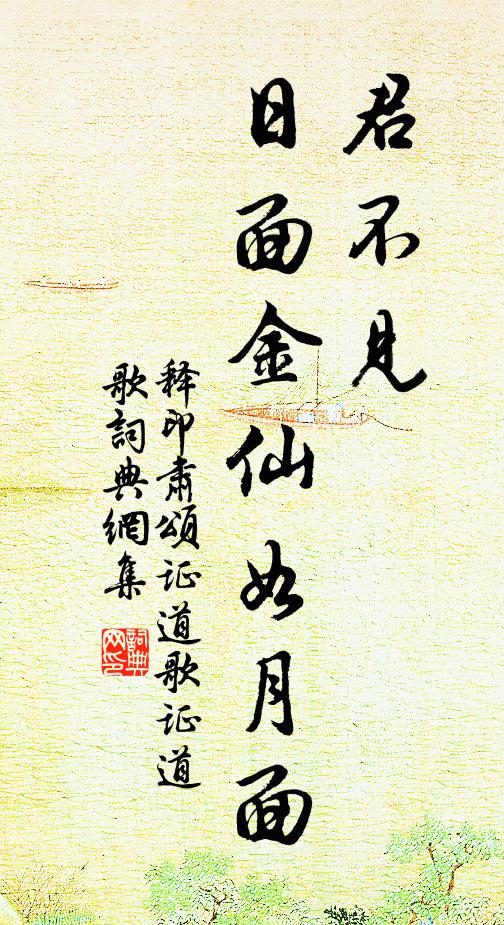 君不见
日面金仙如月面
释印肃颂证道歌证道
歌詞典網集
詞典
网印